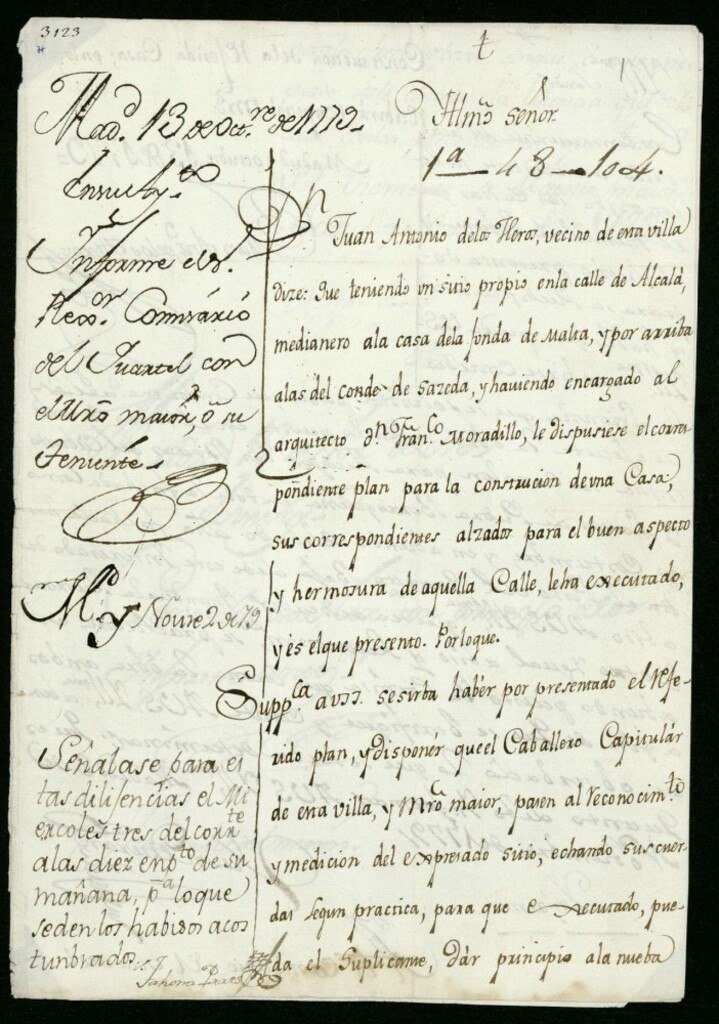 3123
t
1
Mad. 13 de Oct.re de 1779.
Informe el S.r
Rexo.or Comisário
del Quartel con
el Mrō maior, ō su
teniente.
Nov.re 2 de 79
Señálase para es
tas dilisencias el Mi
ercoles tres del corr.te
alas diez en p.to de su
mañana, p.a loque
seden los habisos acos
tunbrados.
Illmō señor.
1a — 48 — 104.
Dn Juan Antonio delos Heros, vecino de esta villa
dize: Que teniendo un sitio propio enla calle de Alcalá,
medianero ala casa dela fonda de Malta, y por arriba
alas del conde de Sazeda, y haviendo encargado al
arquitecto dn Fran.co Moradillo, le dispusiese el corres
pondiente plan para la construcion de una Casa,
sus correspondientes alzados para el buen aspecto
y hermosura de aquella Calle, leha executado,
y és elque presento. Porloque.
Supp.ca avss. sesirba habér por presentado el refe-
rido plan, y disponér queel Caballero Capitulár
de esta villa, y Mrō maior, pasen al reconocim.to
y medicion del expresado sitio, echando sus cuer
das segun practica, para que executado, pue-
da el Suplicante, dár principio ala nueba